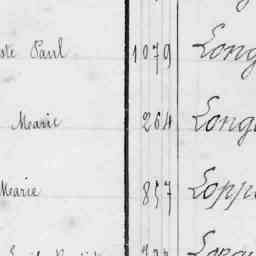 Paul 1079 Long
Marie 264 Long
Marie 857 Lopp